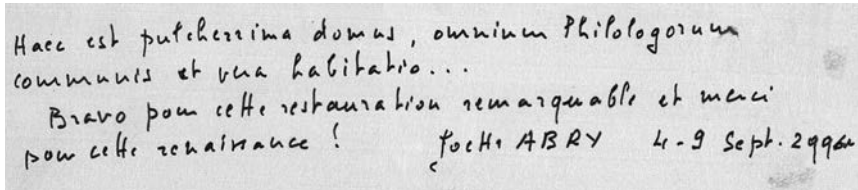 Haec est pulcherrima domus, omnium Philologorum
communis et vera habitatio...
Bravo pour cette restauration remarquable et merci
pour cette renaissance ! Josette ABRY 4-9 Sept.